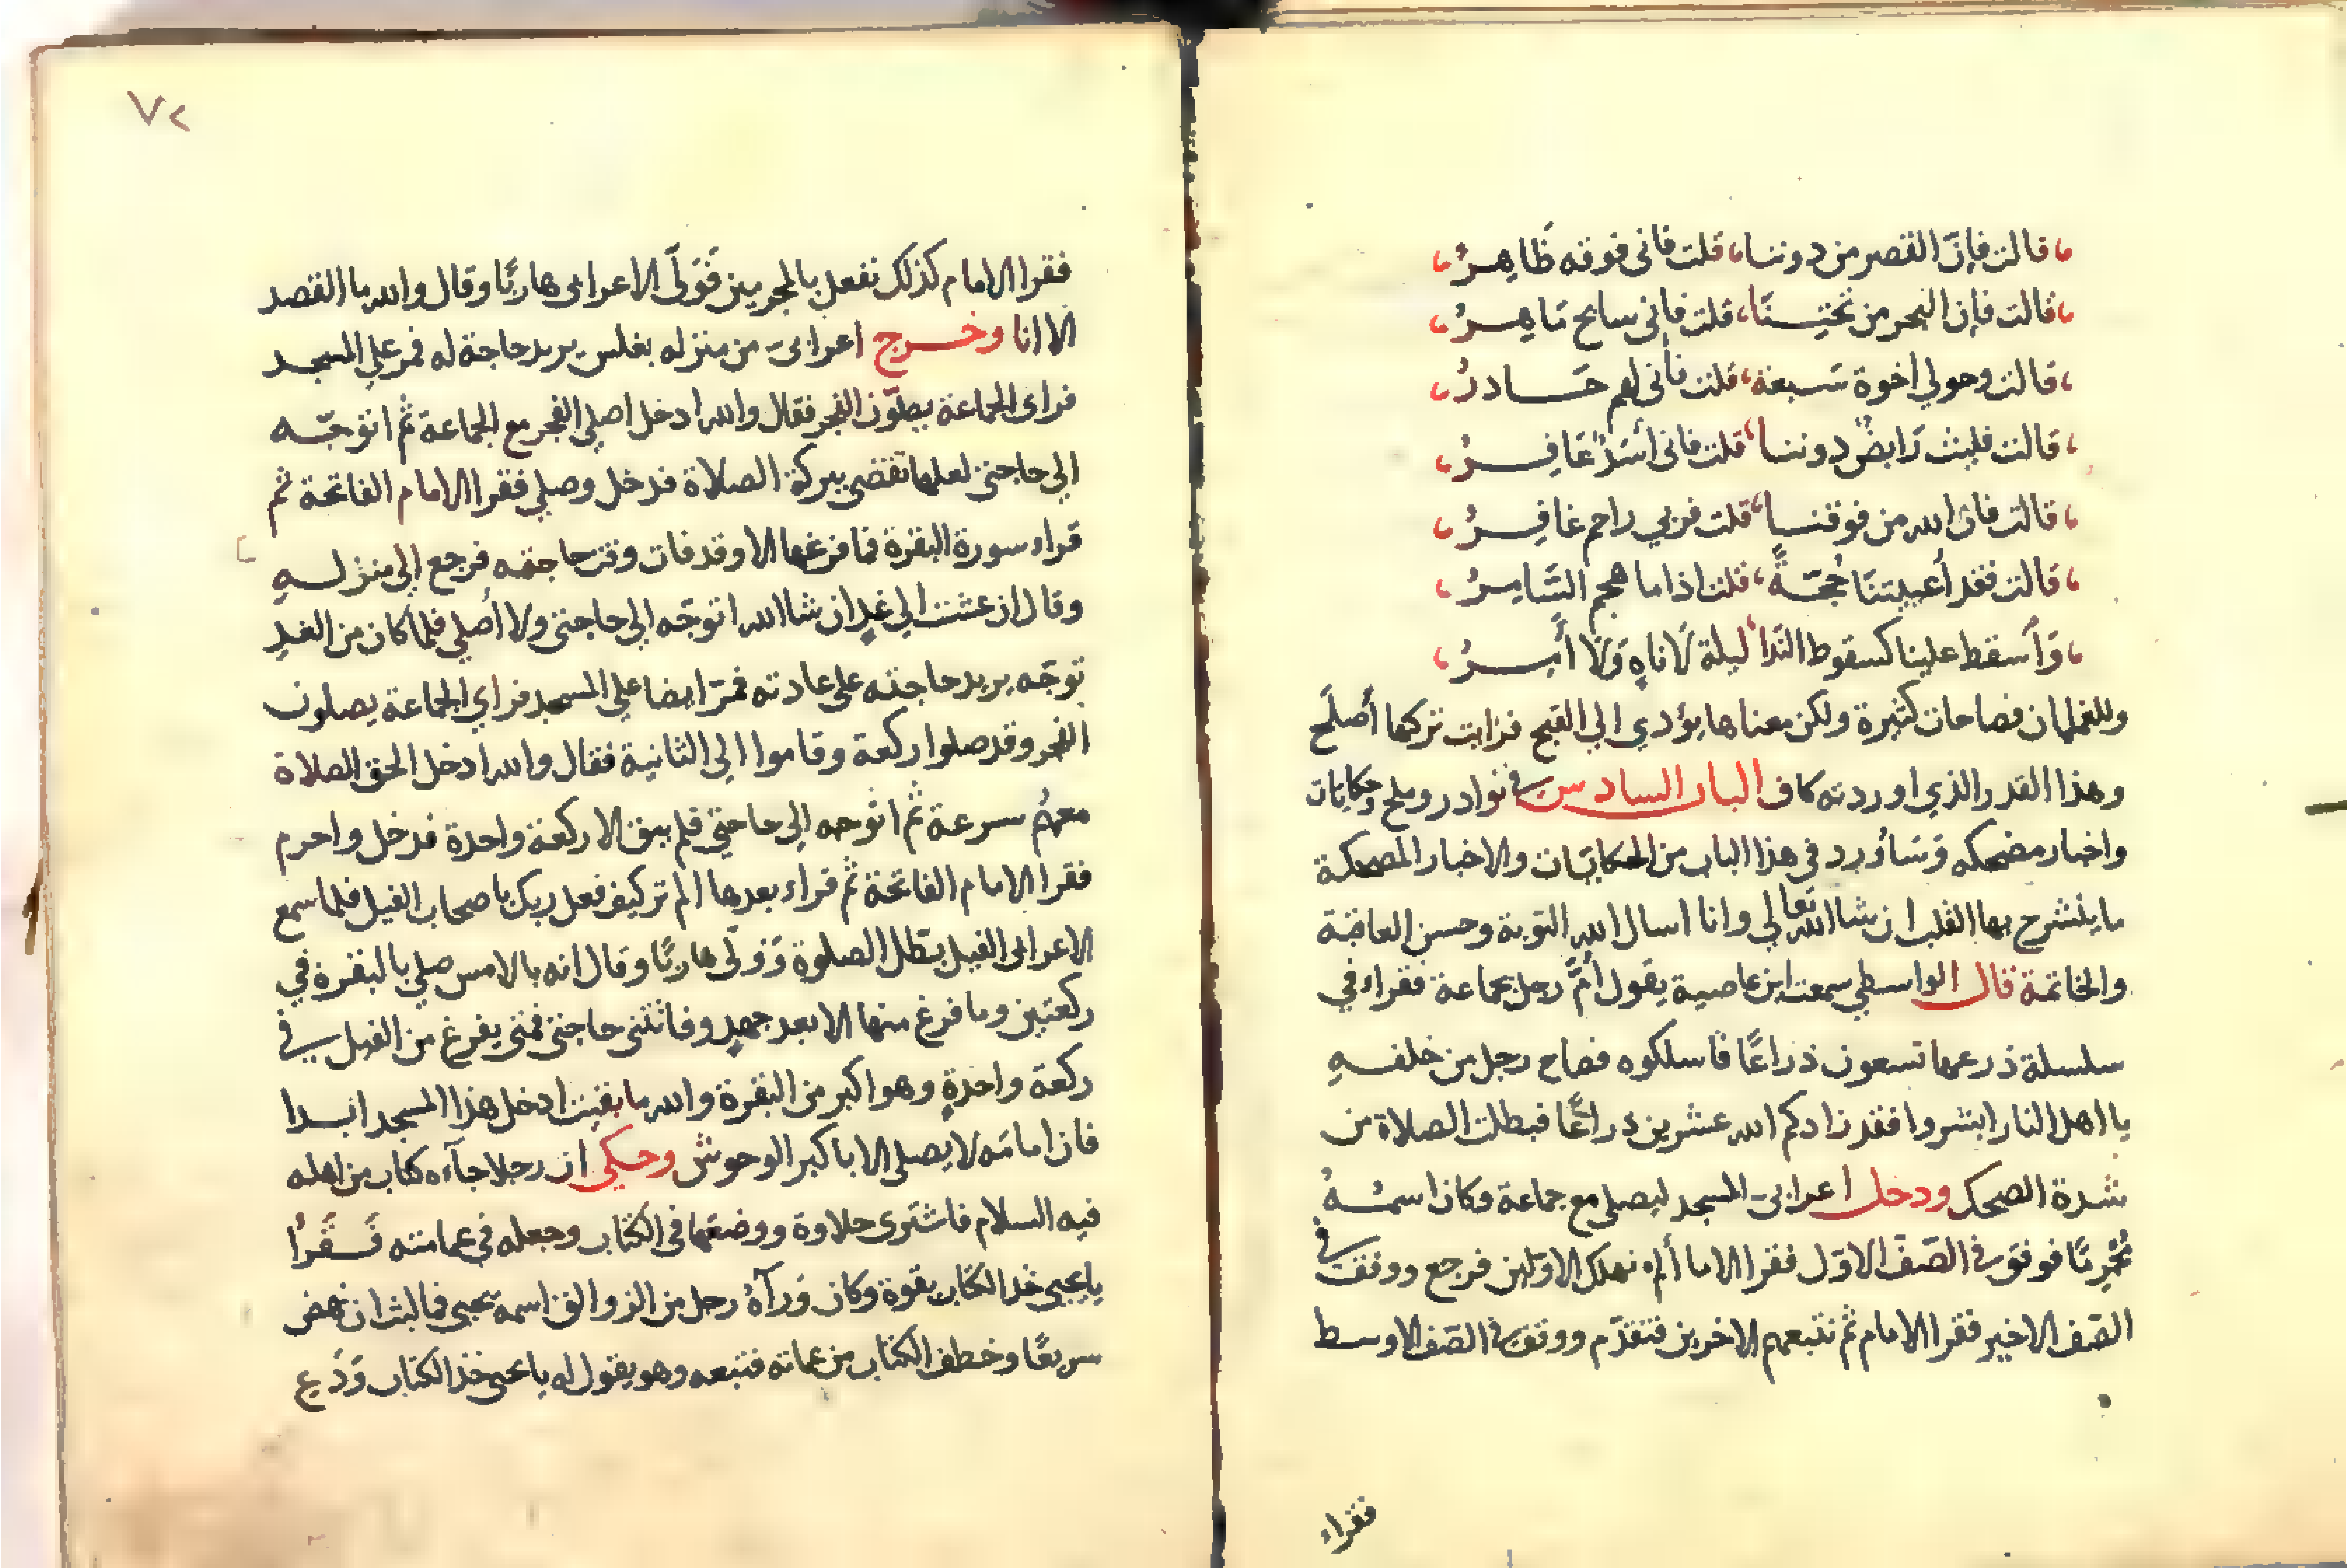 قالت فإن القصر من دوننا، قلت فاني فوقه ظاهرُ
قالت فإن البحر من تحتنا، قلت فاني سابح ماهرُ
قالت وحولي اخوة سبعة، قلت فأني لهم حادرُ
قالت فليث رابضٌ دوننا، قلت فاني أسدٌ عافرُ
قالت فان الله من فوقنا، قلت فربي راحم غافرُ
قالت فقد أعييتنا حجةً، قلت اذا ما هجم السامرُ
وأسقط علينا كسقوط الندا، ليلة لا ناهٍ ولا أمرُ
وللغلمان فصاحات كثيرة ولكن معناها يؤدي الي القبح فرايت تركها أصلح
وهذا القدر الذي اوردته كاف الباب السادس في نوادر وملح وحكايات
واخبار مضحكه وسأورد في هذا الباب من الحكايات والاخبار المضحكة
ما ينشرح بها القلب ان شا الله تعالي وانا اسال الله التوبة وحسن العاقبة
والخاتمة قال الواسطي سمعت ابن عاصية يقول أمَّ رجل بجماعة فقراء في
سلسلة ذرعها تسعون ذراعًا فاسلكوه فصاح رجل من خلفه
يا اهل النار ابشروا فقد زادكم الله عشرين ذراعًا فبطلت الصلاة من
شدة الضحك ودخل اعرابي المسجد ليصلي مع جماعة وكان اسمهُ
مُجْرِمًا فوقف في الصف الاول فقرا الاما ألم نهلك الاولين فرجع ووقف في
الصف الاخير فقرا الامام ثم نتبعهم الاخرين فتقدم ووقف في الصف الاوسط
فقراء
٧٢
فقرا الامام كذلك نفعل بالمجرمين فَوَلّى الاعرابي هاربًا وقال والله ما القصد
الا انا وخرج اعرابي من منزله بغلس يريد حاجة له فمر علي المسجد
فراي الجماعة يصلّون الفجر فقال والله ادخل اصلي الفجر مع الجماعة ثم اتوجّه
الي حاجتي لعلها تقضي ببركة الصلاة فدخل وصلي فقرا الامام الفاتحة ثم
قراء سورة البقرة فما فرغها الا وقد فات وقت حاجته فرجع إلي منزله
وقال ان عشت الي غدٍ ان شا الله اتوجّه الي حاجتي ولا أصلي فلما كان من الغد
توجّه يريد حاجته علي عادته فمرّ ايضا علي المسجد فراي الجماعة يصلون
الفجر وقد صلوا ركعة وقاموا الي الثانية فقال والله ادخل الحق الصلاة
معهُم سرعة ثم اتوجه إلي حاجتي فلم يبق الا ركعة واحدة فدخل واحرم
فقرا الامام الفاتحة ثم قراء بعدها الم تر كيف فعل ربك باصحاب الفيل فلما سمع
الاعرابي الفيل بطّل الصلوة وَوَلّي هاربًا وقال انه بالامس صلي بالبقرة في
ركعتين وما فرغ منها الا بعد جهدٍ وفاتتني حاجتي فمتي يفرغ من الفيل في
ركعة واحدةٍ وهو اكبر من البقرة والله ما بقيت ادخل هذا المسجد ابدا
فان امامه لا يصلي الا باكبر الوحوش وحكي ان رجلا جآءه كتاب من اهله
فيه السلام فاشتري حلاوة ووضعها في الكتاب وجعله في عمامته فقرأ
يا يحيي خذ الكتاب بقوة وكان ورآهُ رجل من الزوالق اسمه يحيي فما لبث ان نهض
سريعًا وخطف الكتاب من عمامته فتبعه وهو يقول له يا يحيي خذ الكتاب ودع